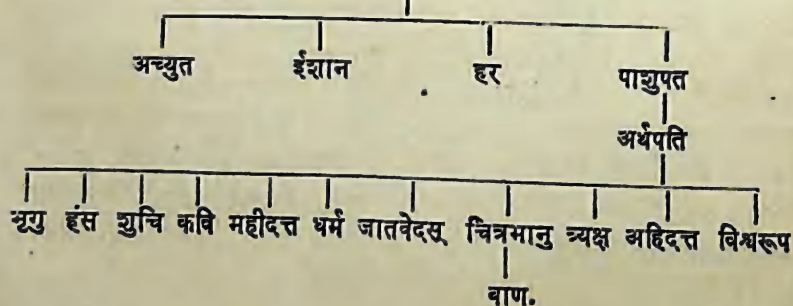 अच्युत ईशान हर पाशुपत
अर्थपति
भृगु हंस शुचि कवि महीदत्त धर्म जातवेदस् चित्रभानु त्र्यक्ष अहिदत्त विश्वरूप
बाण.